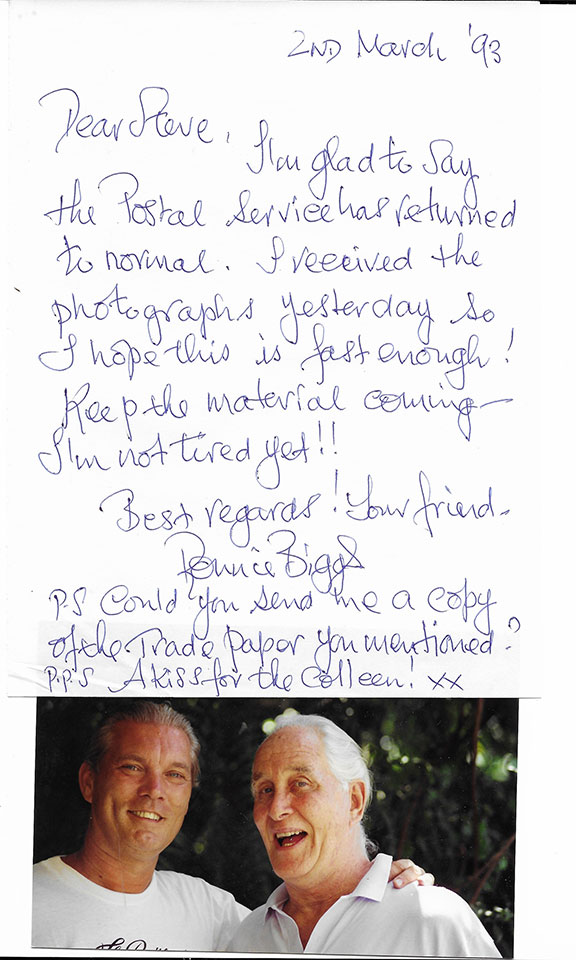 2ND March '93
Dear Steve,
I'm glad to say
the Postal Service has returned
to normal. I received the
photographs yesterday so
I hope this is fast enough!
Keep the material coming—
I'm not tired yet!!
Best regards! Your friend.
Ronnie Biggs
P.S Could you send me a copy
of the Trade paper you mentioned?
P.P.S A kiss for the Colleen! xx